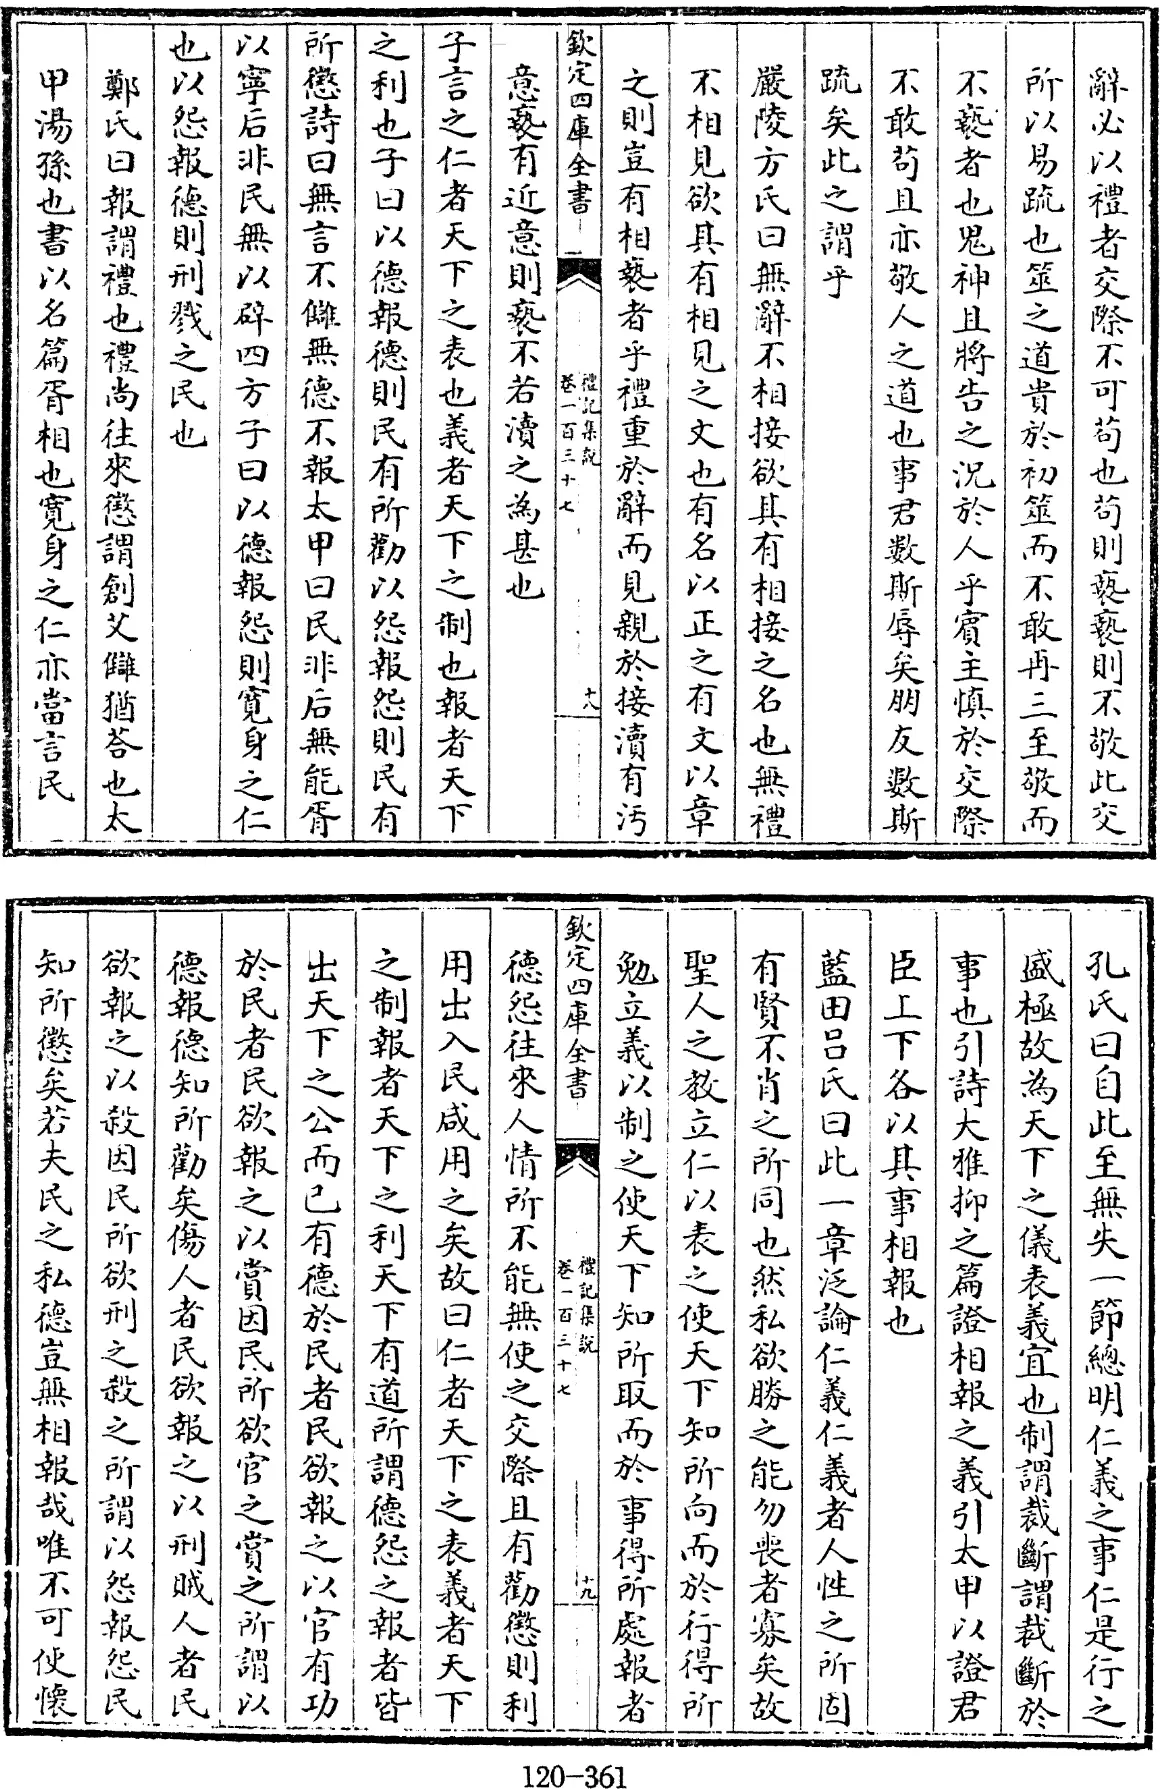 辭必以禮者交際不可苟也苟則褻褻則不敬此交
所以易疏也筮之道貴於初筮而不敢再三至敬而
不褻者也鬼神且將告之況於人乎賓主慎於交際
不敢苟且亦敬人之道也事君數斯辱矣朋友數斯
疏矣此之謂乎
嚴陵方氏曰無辭不相接欲其有相接之名也無禮
不相見欲其有相見之文也有名以正之有文以章
之則豈有相褻者乎禮重於辭而見親於接瀆有汚
欽定四庫全書
禮記集說
卷一百三十七
十八
意褻有近意則褻不若瀆之為甚也
子言之仁者天下之表也義者天下之制也報者天下
之利也子曰以德報德則民有所勸以怨報怨則民有
所懲詩曰無言不讎無德不報太甲曰民非后無能胥
以寧后非民無以辟四方子曰以德報怨則寛身之仁
也以怨報德則刑戮之民也
鄭氏曰報謂禮也禮尚往來懲謂創艾讎猶荅也太
甲湯孫也書以名篇胥相也寛身之仁亦當言民
孔氏曰自此至無失一節總明仁義之事仁是行之
盛極故為天下之儀表義宜也制謂裁斷謂裁斷於
事也引詩大雅抑之篇證相報之義引太甲以證君
臣上下各以其事相報也
藍田呂氏曰此一章泛論仁義仁義者人性之所固
有賢不肖之所同也然私欲勝之能勿喪者寡矣故
聖人之教立仁以表之使天下知所向而於行得所
勉立義以制之使天下知所取而於事得所處報者
欽定四庫全書
禮記集說
卷一百三十七
十九
德怨往來人情所不能無使之交際且有勸懲則利
用出入民咸用之矣故曰仁者天下之表義者天下
之制報者天下之利天下有道所謂德怨之報者皆
出天下之公而已有德於民者民欲報之以官有功
於民者民欲報之以賞因民所欲官之賞之所謂以
德報德知所勸矣傷人者民欲報之以刑賊人者民
欲報之以殺因民所欲刑之殺之所謂以怨報怨民
知所懲矣若夫民之私德豈無相報哉唯不可使懷
120-361